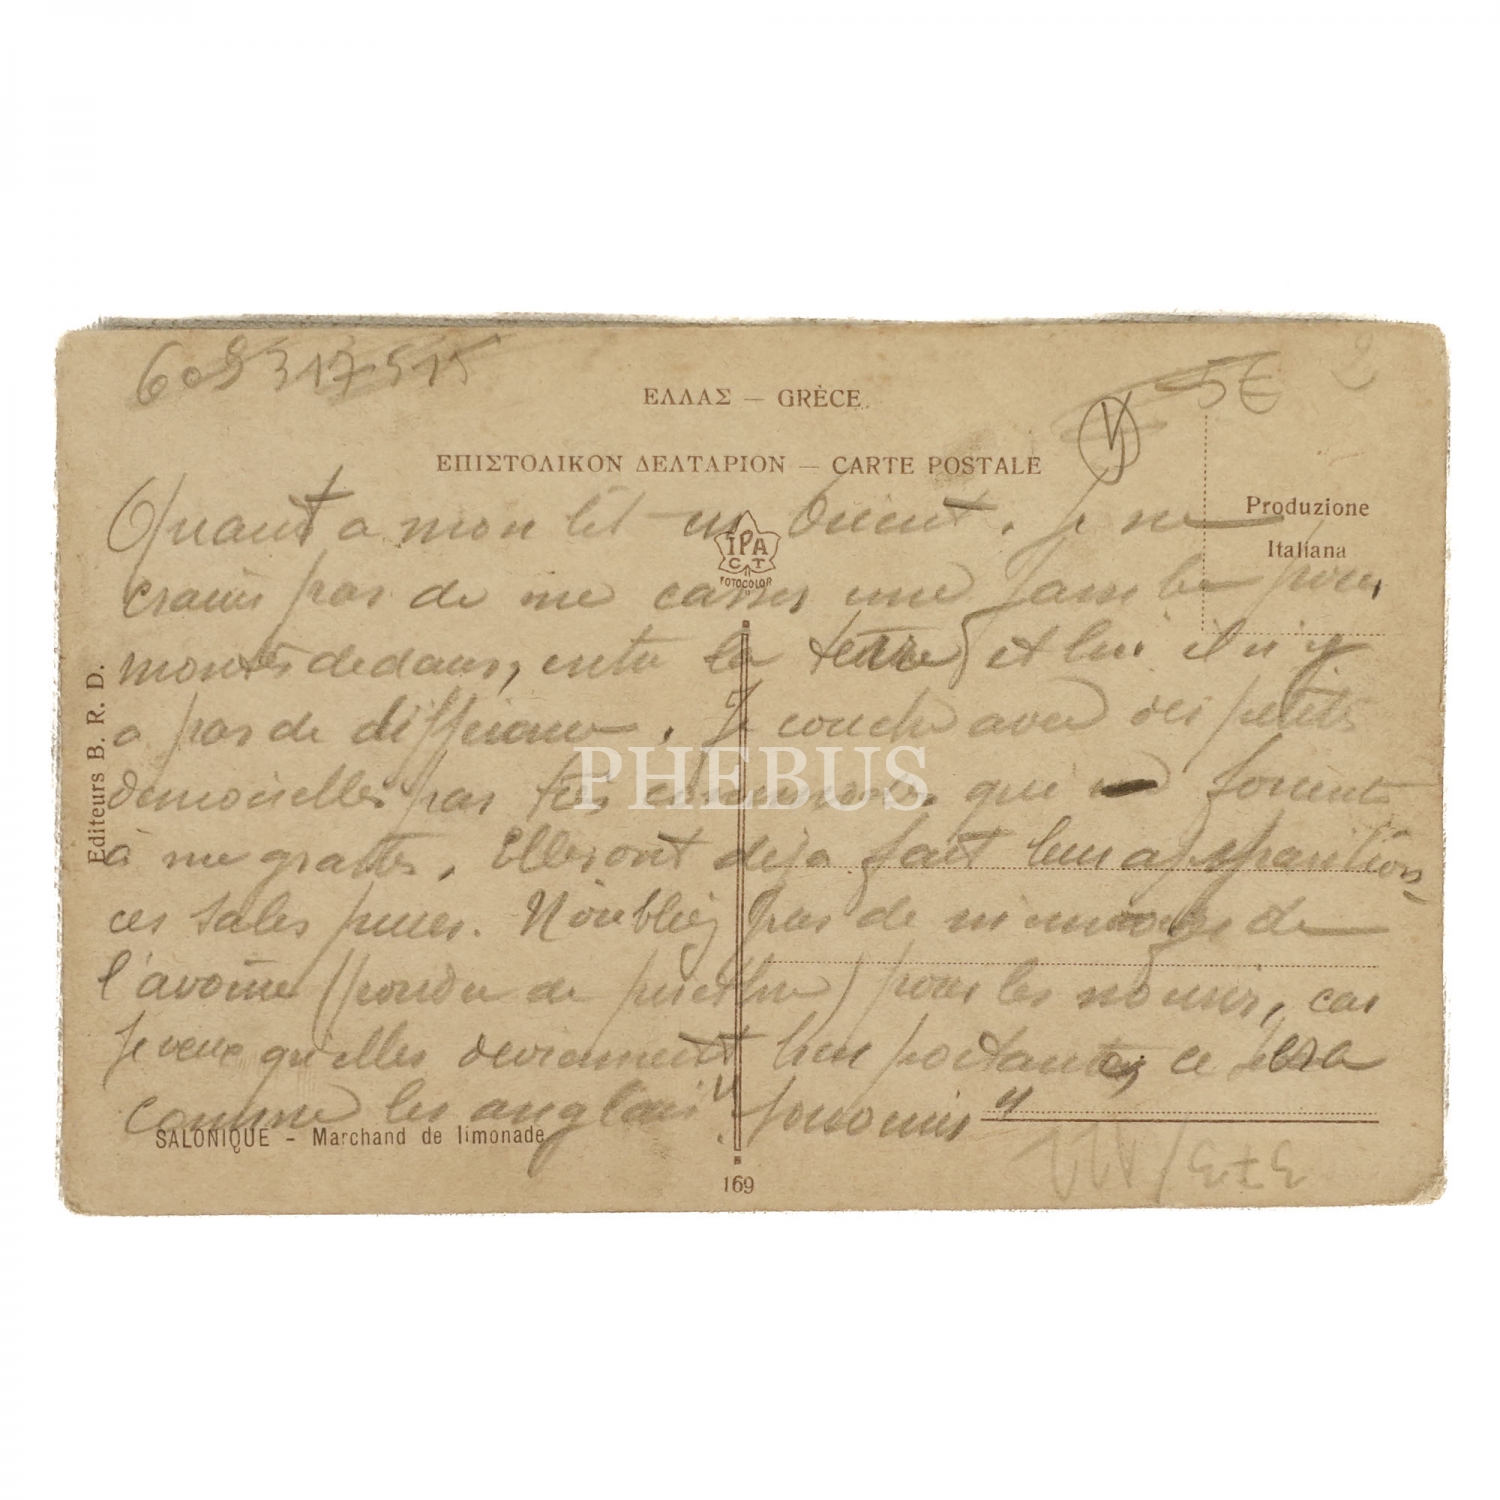 608 317 515
5€ 2
V
ΕΛΛΑΣ — GRÈCE
ΕΠΙΣΤΟΛΙΚΟΝ ΔΕΛΤΑΡΙΟΝ — CARTE POSTALE
Produzione
Italiana
IPA
CT
FOTOCOLOR
Editeurs B. R. D.
Quant a mon lit en Orient. Je ne
crains pas de me casser une jambe pour
monter dedans, entre la terre et lui il n'y
a pas de différence. Je couche avec des petites
demoiselles pas très qui forcent
à me gratter. Elles ont déjà fait leur apparition
ces sales puces. N'oubliez pas de m'envoyer de
l'avoine (poudre de pyrethre) pour les nourrir, car
je veux qu'elles deviennent bien portantes, ce sera
comme les anglais "
SALONIQUE - Marchand de limonade
169
373/
PHEBUS